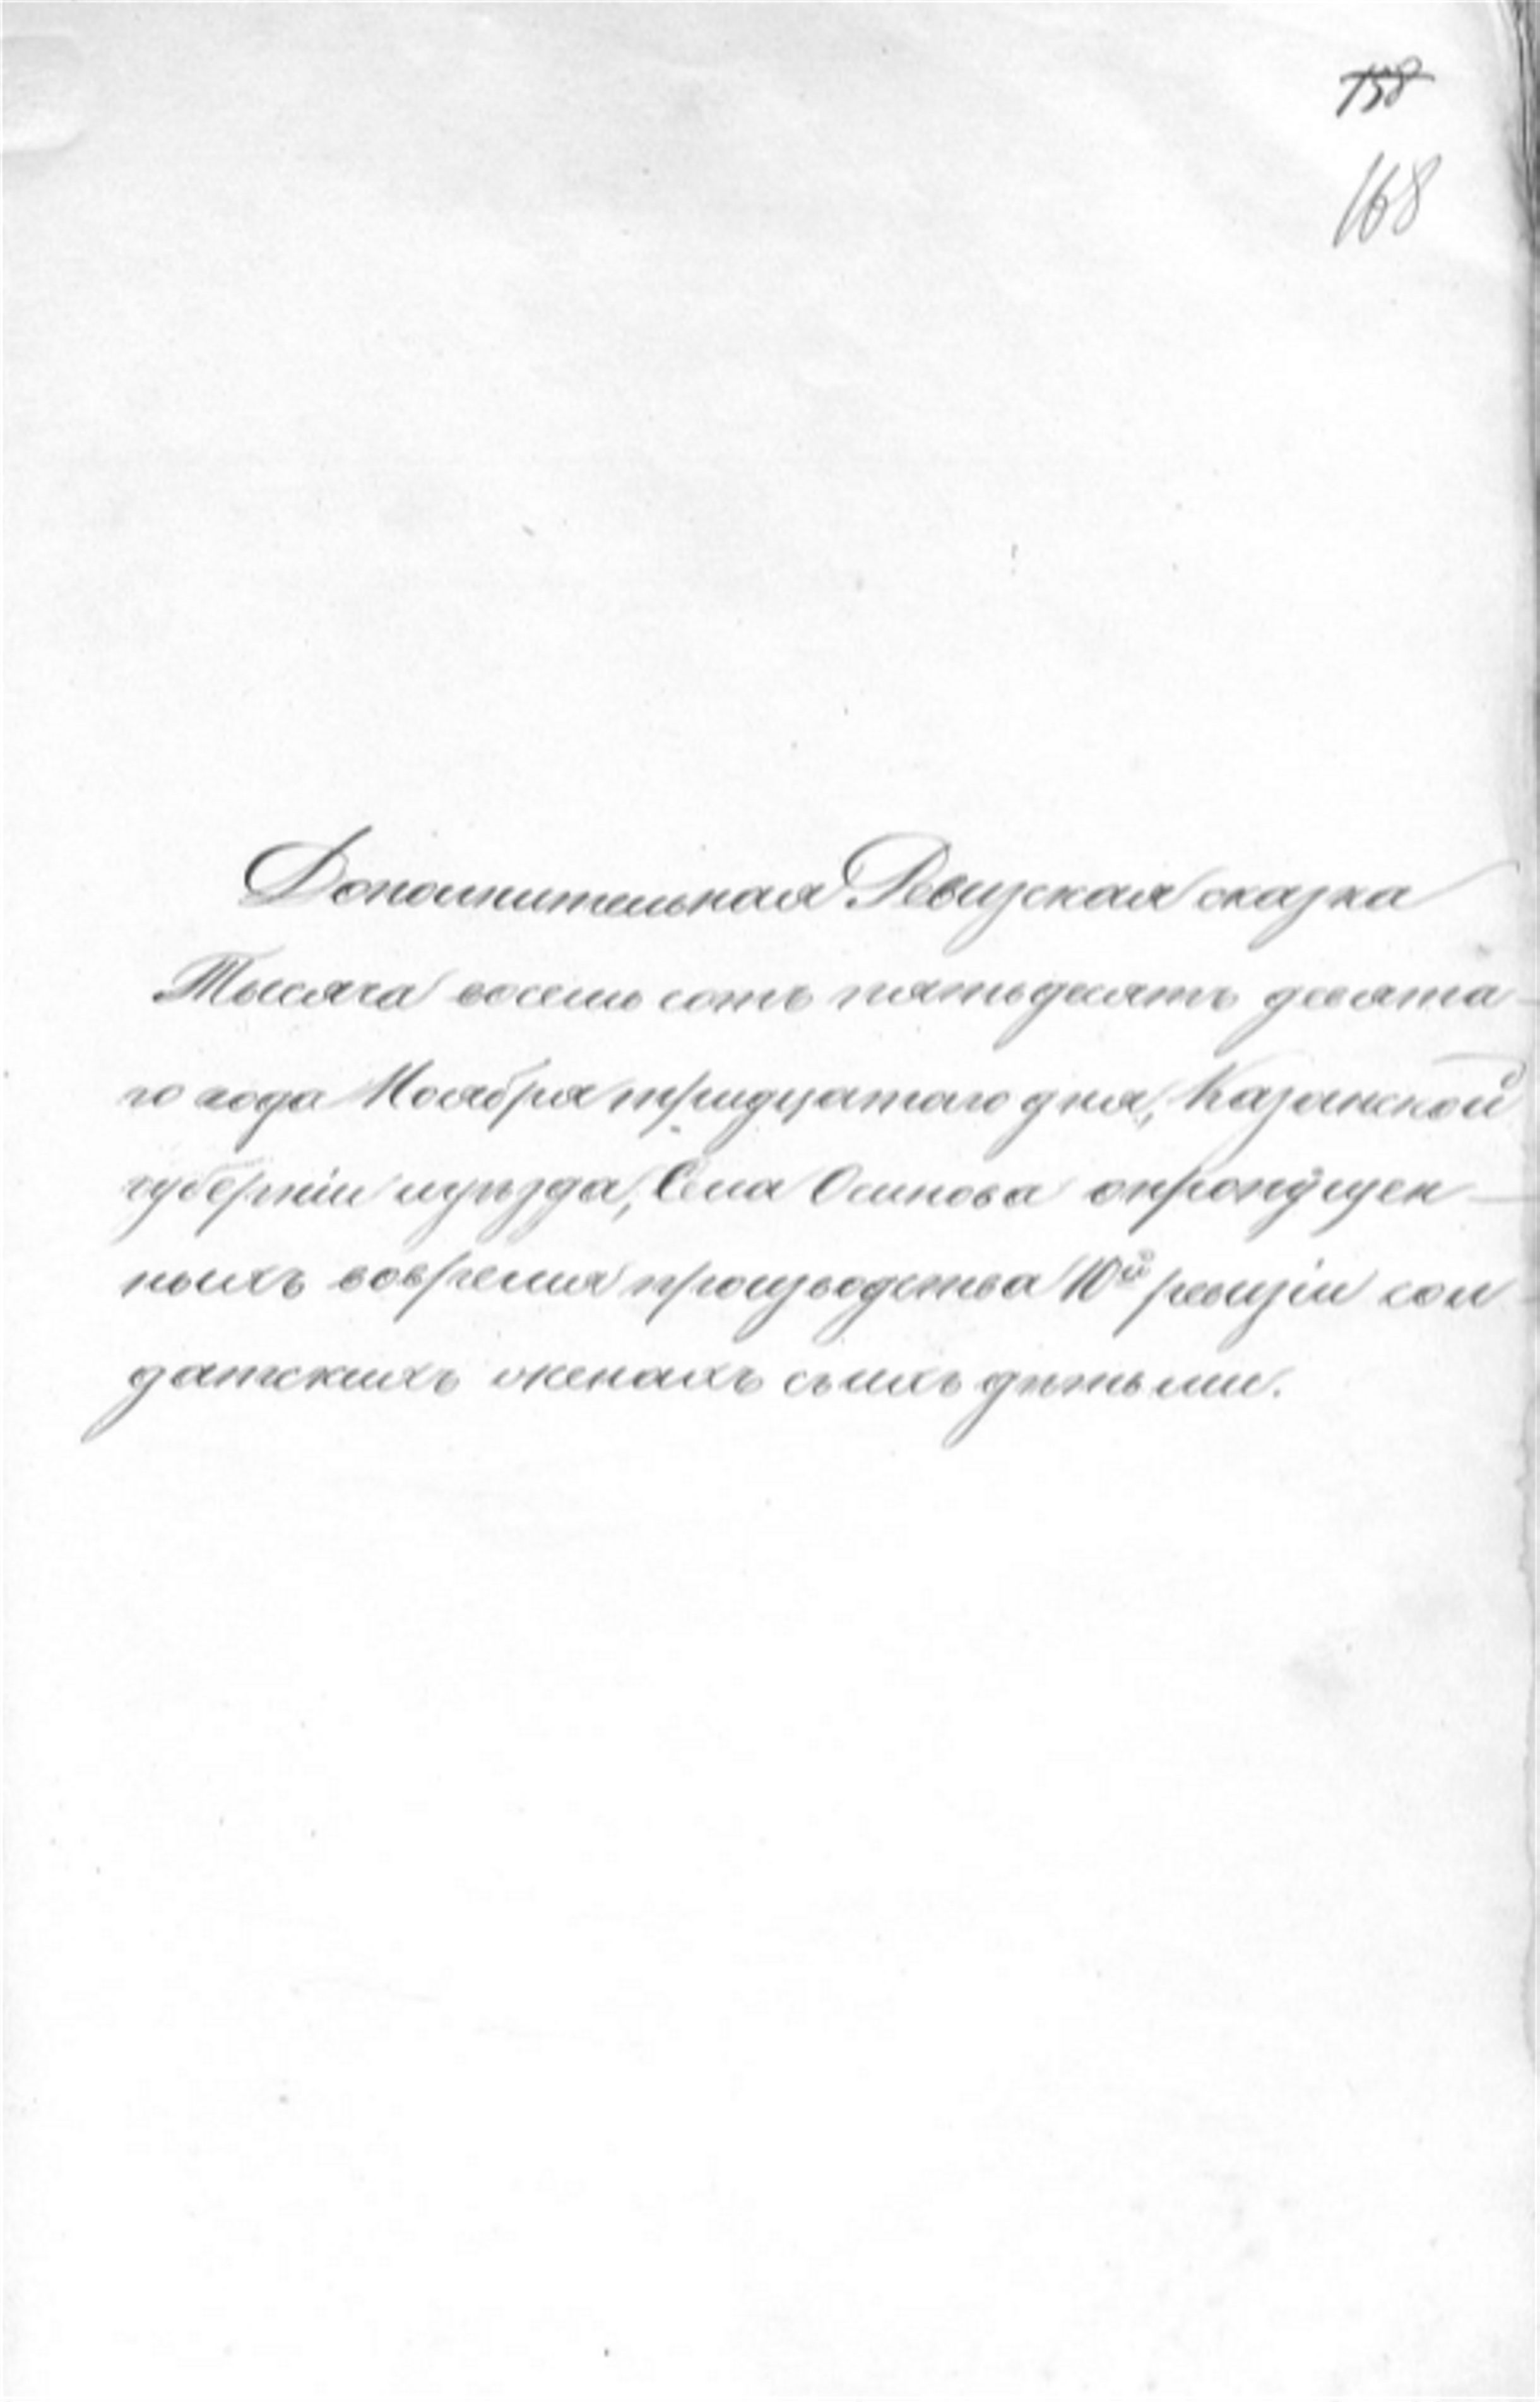 158
168
Дополнительная Ревизская сказка
Тысяча восемь сотъ пятьдесятъ девята-
го года Ноября тридцатаго дня, Казанской
губерніи иуѣзда, Села Осинова опропущен-
ныхъ вовремя производства 10й ревизіи сол
датскихъ женахъ сыихъ дѣтьми.